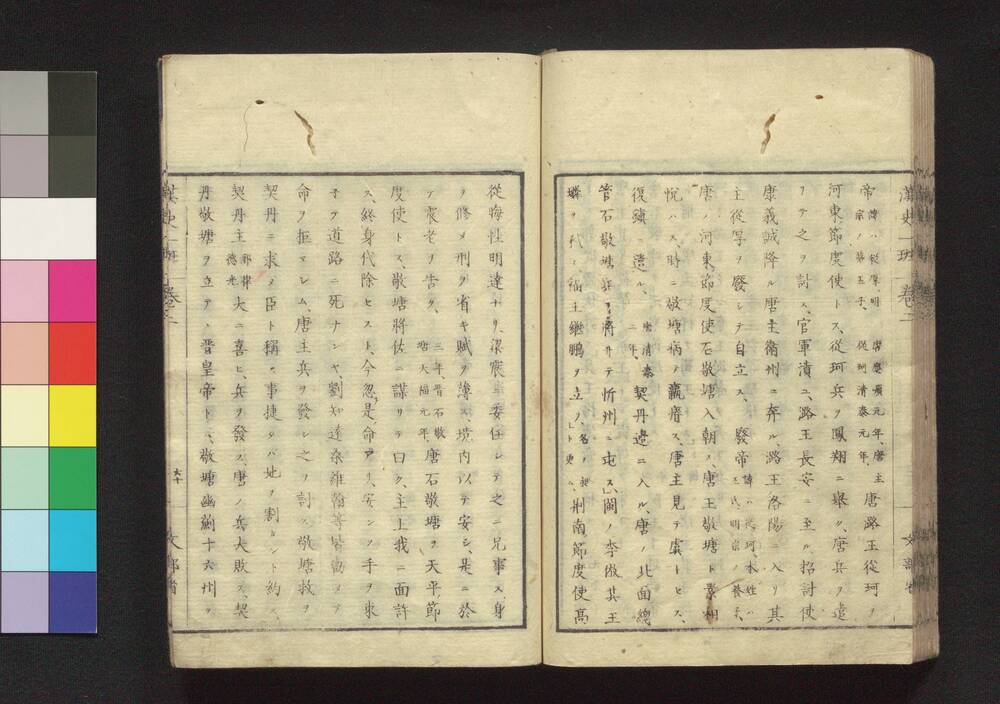 漢史一班 卷二
帝諱ハ從厚、明宗ノ第五子、唐應順元年、唐主從珂清泰元年、唐潞王從珂ヲ
河東節度使トス、從珂兵ヲ鳳翔ニ擧ク、唐兵ヲ遣
リテ之ヲ討ス、官軍潰ユ、潞王長安ニ至ル、招討使
康義誠降ル、唐主衞州ニ奔ル、潞王洛陽ニ入リ其
主從厚ヲ廢シテ自立ス、廢帝諱ハ從珂、本姓ハ王氏、明宗ノ養子、
唐ノ河東節度使石敬塘入朝ス、唐王敬塘ト素相
悅ハス、時ニ敬塘病テ羸瘠ス、唐主見テ虞トセス、
復鎮ニ遣ル、唐清泰二年、契丹邊ニ入ル、唐ノ北面總
管石敬塘兵ヲ將ヰテ忻州ニ屯ス、閩ノ李倣其王
璘ヲ弑シ福王繼鵬ヲ立ツ、名ヲ昶ト更ム、荆南節度使高
從誨性明達ナリ、梁震ニ委任シテ之ニ兄事ス、身
ヲ修メ刑ヲ省キ賦ヲ薄ス、境内以テ安シ、是ニ於
テ震老ヲ告ク、三年晋石敬塘天福元年、唐石敬塘ヲ天平節
度使トス、敬塘將佐ニ謀リテ曰ク、主上我ニ面許
ス、終身代除セスト、今忽是命アリ、安ンソ手ヲ束
子テ道路ニ死ナンヤ、劉知遠桑維翰等
命ヲ拒マシム、唐主兵ヲ發シ之ヲ討ス、敬塘救ヲ
契丹ニ求メ臣ト稱ス、事捷タハ地ヲ割カント約ス、
契丹主耶律德光大ニ喜ヒ、兵ヲ發ス、唐ノ兵大敗ス、契
丹敬塘ヲ立テヽ晋皇帝トス、敬塘幽薊十六州ヲ
漢史一班 卷二
六十
文部省